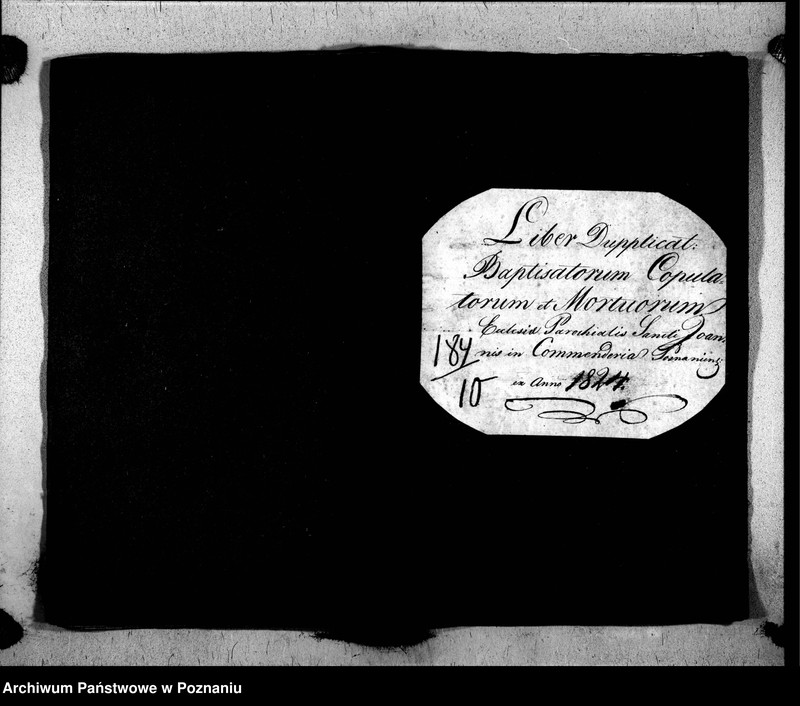 Liber Dupplicat:
Baptisatorum Copula-
torum et Mortuorum
Ecclesiæ Parochialis Sancti Joan-
nis in Commenderia Posnaniens:
ex Anno 1824.
184
10
Archiwum Państwowe w Poznaniu